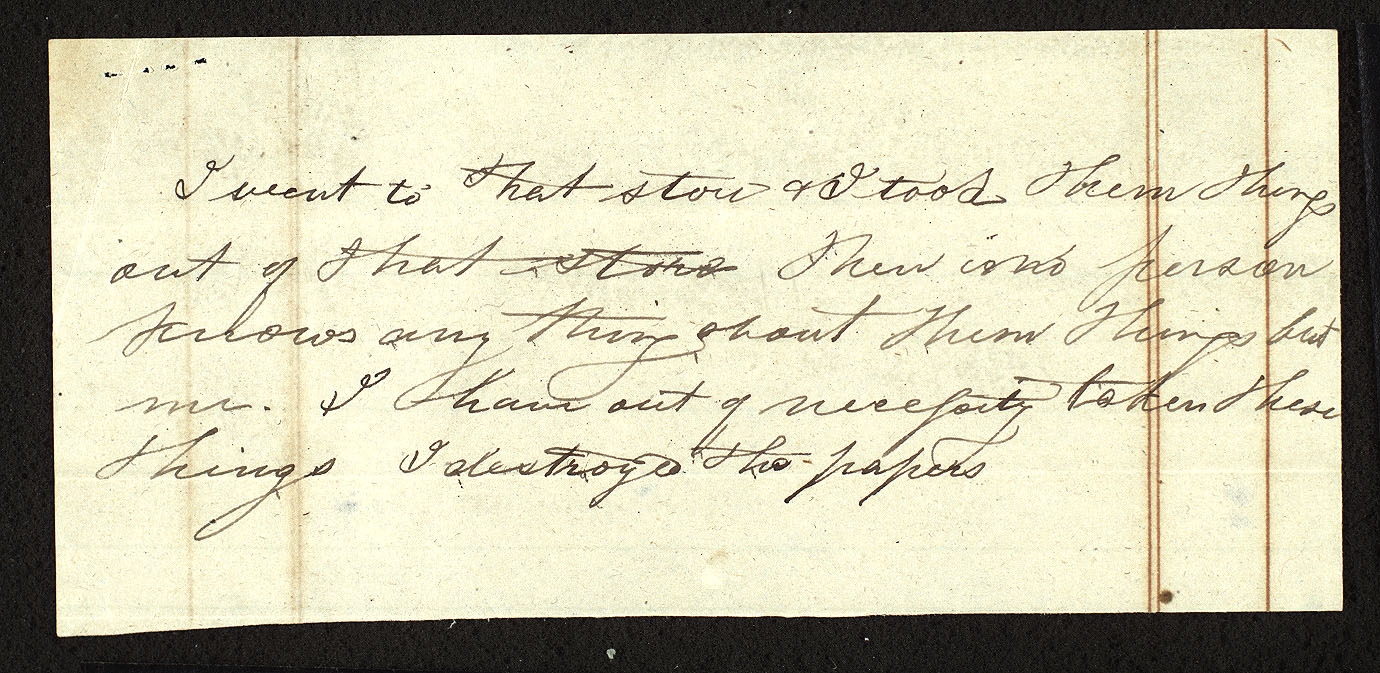 I went to that store & I took them things
out of that store There is no person
knows any thing about them things but
me. I have out of necessity taken these
things I destroyed the papers